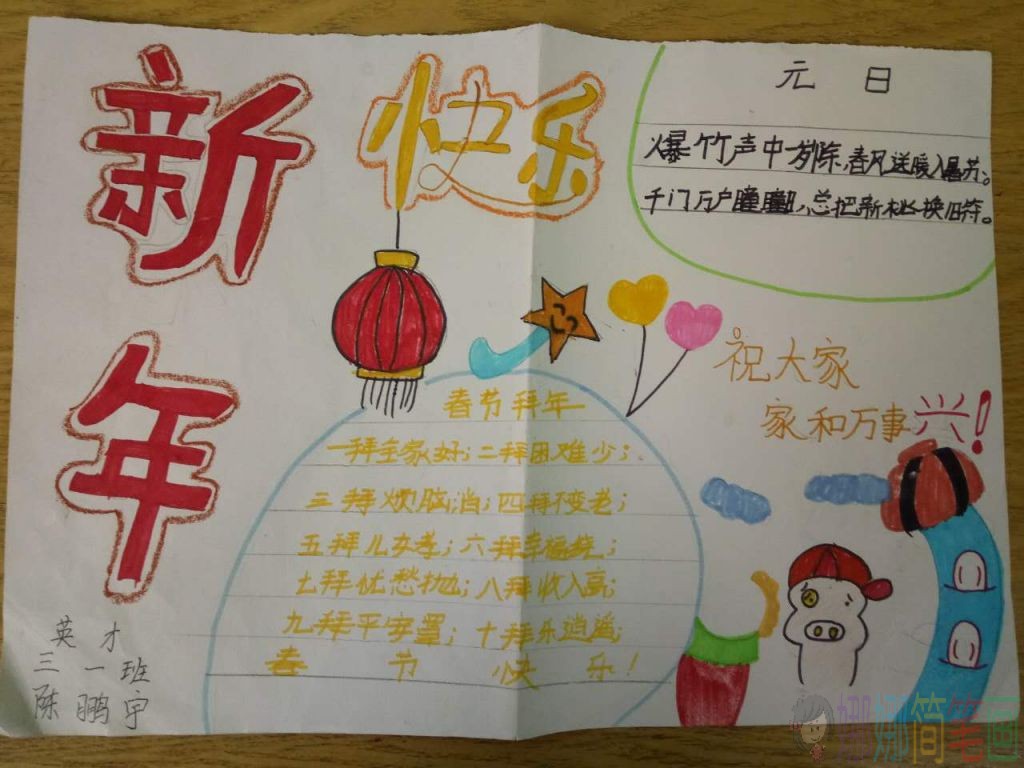 新年
快乐
元 日
爆竹声中一岁除,春风送暖入屠苏。
千门万户瞳瞳日,总把新桃换旧符。
祝大家
家和万事兴!
春节拜年
一拜全家好;二拜困难少;
三拜烦脑消;四拜不变老;
五拜儿女孝;六拜幸福绕;
七拜忧愁抛;八拜收入高;
九拜平安罩;十拜乐逍遥;
春 节 快 乐!
英 才
三 一 班
陈 鹏 宇
娜娜简笔画